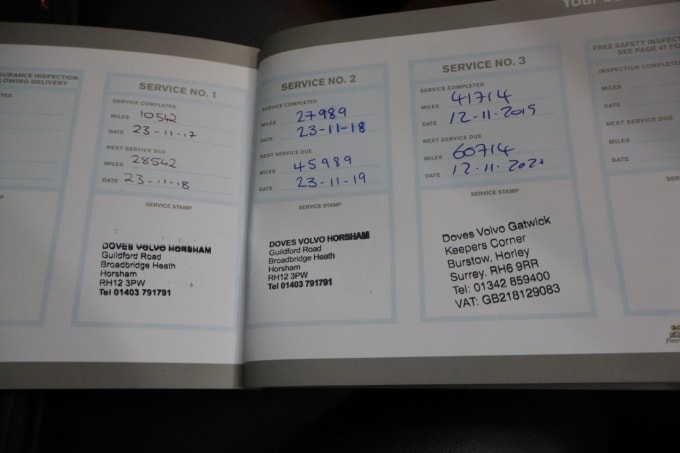 SURANCE INSPECTION
LOWING DELIVERY
SERVICE NO. 1
SERVICE COMPLETED
MILES 10542
DATE 23-11-17
NEXT SERVICE DUE
MILES 28542
DATE 23-11-18
SERVICE STAMP
DOVES VOLVO HORSHAM
Guildford Road
Broadbridge Heath
Horsham
RH12 3PW
Tel 01403 791791
SERVICE NO. 2
SERVICE COMPLETED
MILES 27989
DATE 23-11-18
NEXT SERVICE DUE
MILES 45989
DATE 23-11-19
SERVICE STAMP
DOVES VOLVO HORSHAM
Guildford Road
Broadbridge Heath
Horsham
RH12 3PW
Tel 01403 791791
SERVICE NO. 3
SERVICE COMPLETED
MILES 41714
DATE 12-11-2019
NEXT SERVICE DUE
MILES 60714
DATE 12-11-2020
SERVICE STAMP
Doves Volvo Gatwick
Keepers Corner
Burstow, Horley
Surrey. RH6 9RR
Tel: 01342 859400
VAT: GB218129083
FREE SAFETY INSPECT
SEE PAGE 41 FO
INSPECTION COMPLETE
MILES
DATE
NEXT SERVICE DUE
MILES
DATE